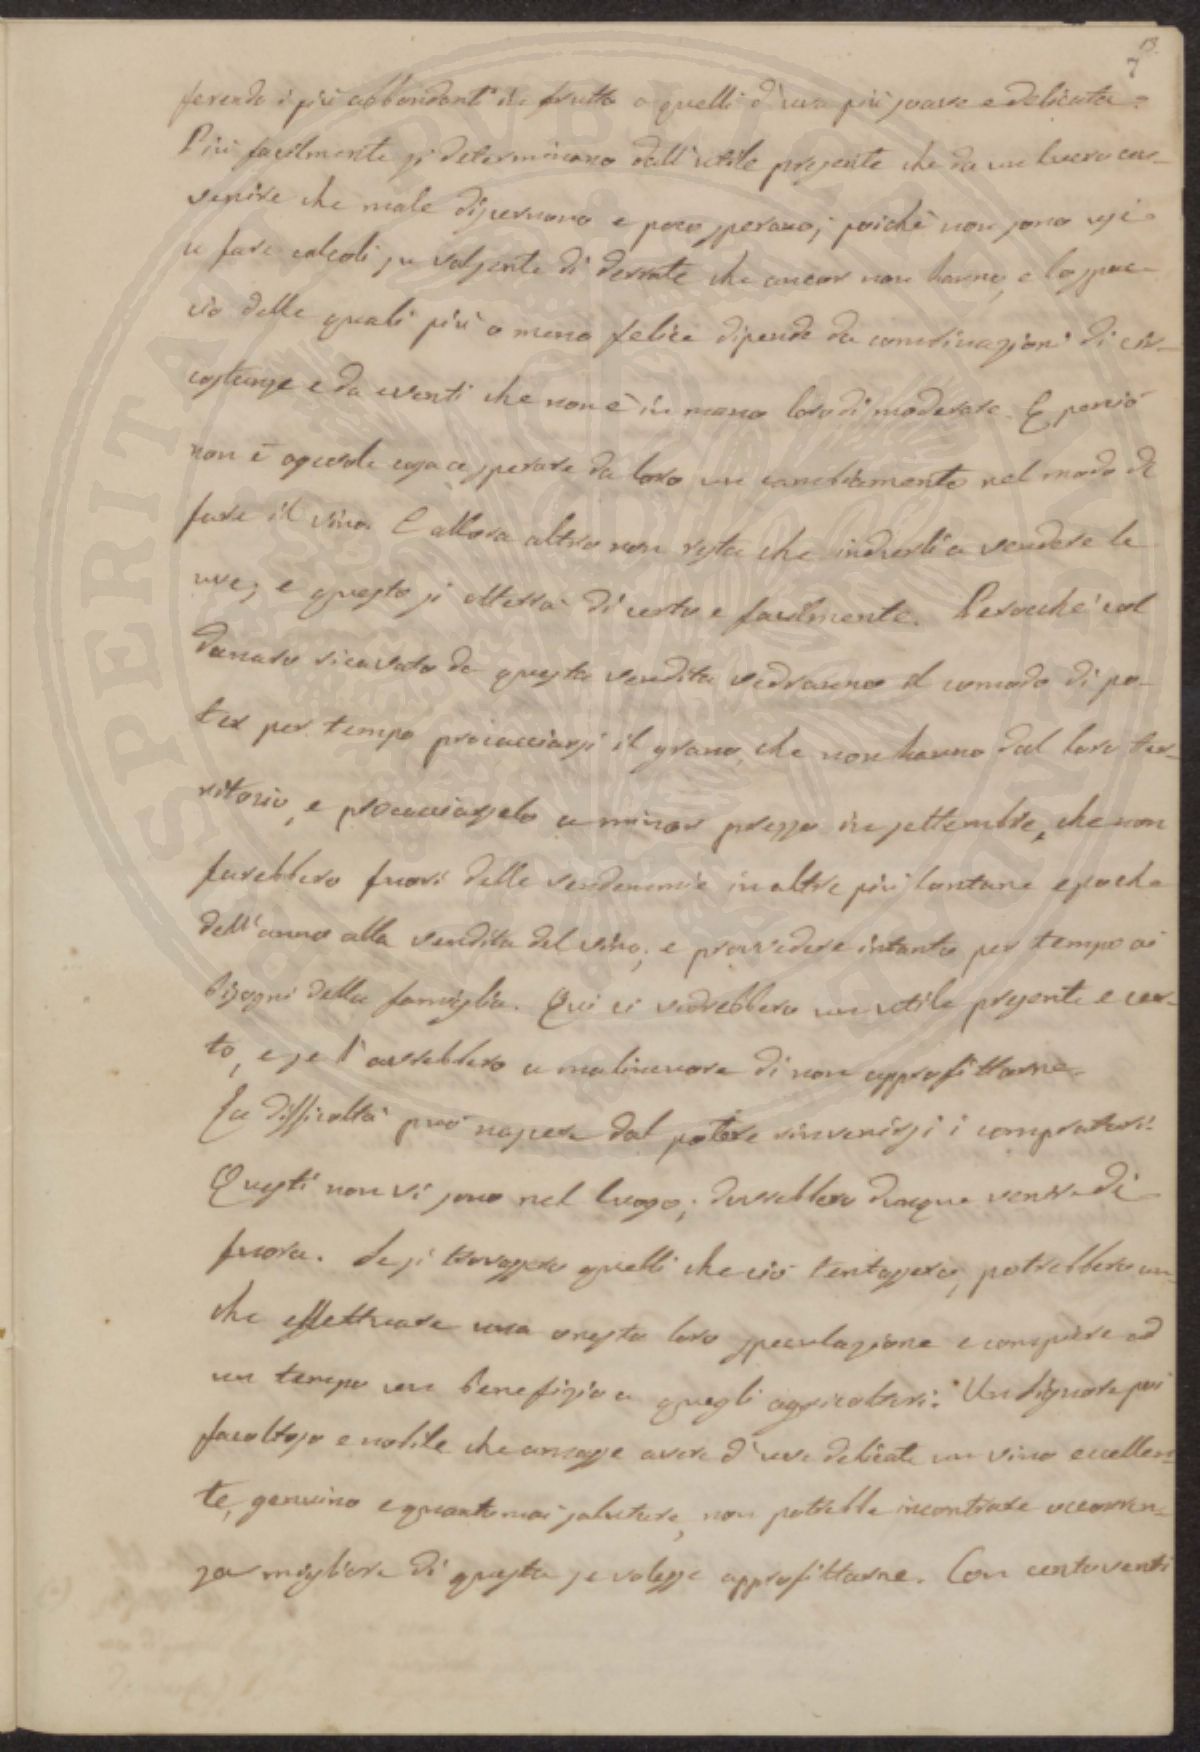 13.
7
ferendo i più abbondanti in frutto a quelli d'uva più soave e delicata.
Più facilmente si determinano dall'utile presente che da un lucro av-
venire che male discernono e poco sperano; poichè non sono usi
a fare calcoli su valsente di derrate che ancor non hanno, e lo spac-
cio delle quali più o meno felice dipende da combinazioni di cir-
costanze e da eventi che non è in mano loro di moderare. E perciò
non è agevole cosa sperare da loro un cambiamento nel modo di
fare il vino. E allora altro non resta che indurli a vendere le
uve; e questo si otterrà di certo e facilmente. Perocchè col
danaro ricavato da questa vendita vedranno il comodo di po-
ter per tempo procacciarsi il grano, che non hanno dal loro ter-
ritorio, e procacciarselo a minor prezzo in settembre, che non
farebbero fuori delle vendemmie in altre più lontane epoche
dell'anno alla vendita del vino; e provvedere intanto per tempo ai
bisogni della famiglia. Qui ci vedrebbero un utile presente e cer-
to, e se l'avrebbero a malincuore di non approfittarne.
La difficoltà può nascere dal potere rinvenirsi i compratori.
Questi non vi sono nel luogo; dovrebbero dunque venire di
fuora. Se si trovassero quelli che ciò tentassero, potrebbero an-
che effettuare una onesta loro speculazione e compiere ad
un tempo un benefizio a quegli agricoltori. Un signore poi
facoltoso e nobile che amasse avere d'uve delicate un vino eccellen-
te, genuino e quanto mai salutare, non potrebbe incontrare occorren-
za migliore di questa se volesse approfittarne. Con centoventi
SPERITAT PVBLICA